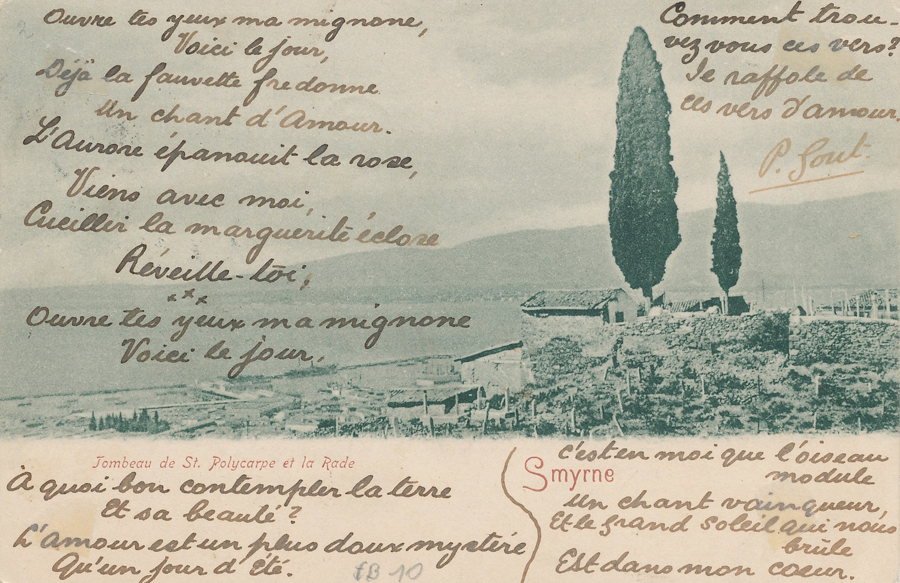 Ouvre tes yeux ma mignonne,
Voici le jour,
Déjà la fauvette fredonne
Un chant d'Amour.
L'Aurore épanouit la rose,
Viens avec moi,
Cueillir la marguerite éclose
Réveille-toi,
x x x
Ouvre tes yeux ma mignonne
Voici le jour.
Tombeau de St. Polycarpe et la Rade
À quoi bon contempler la terre
Et sa beauté?
L'amour est un plus doux mystère
Qu'un jour d'Été.
fB 10
Comment trou-
vez vous ces vers?
Je raffole de
ces vers d'amour.
P. Gout.
Smyrne
c'est en moi que l'oiseau
module
Un chant vainqueur,
Et le grand soleil qui nous
brûle
Est dans mon coeur.